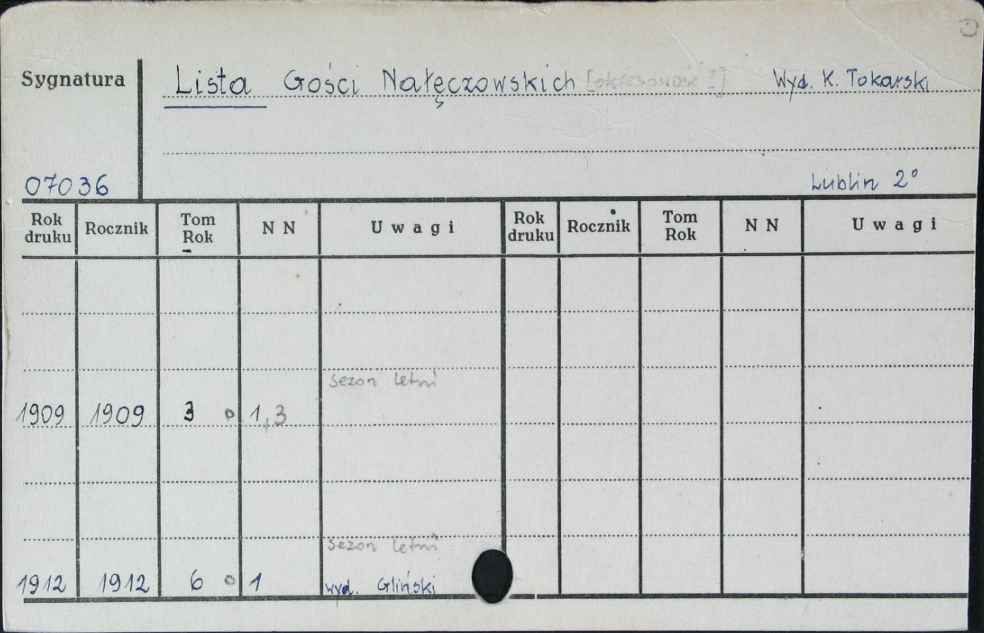 Sygnatura Lista Gości Nałęczowskich [okresowość ?] Wyd. K. Tokarski
07036 Lublin 2°
Rok druku Rocznik Tom Rok N N Uwagi Rok druku Rocznik Tom Rok N N Uwagi
sezon letni
1909 1909 3 o 1,3
sezon letni
1912 1912 6 o 1 wyd. Gliński